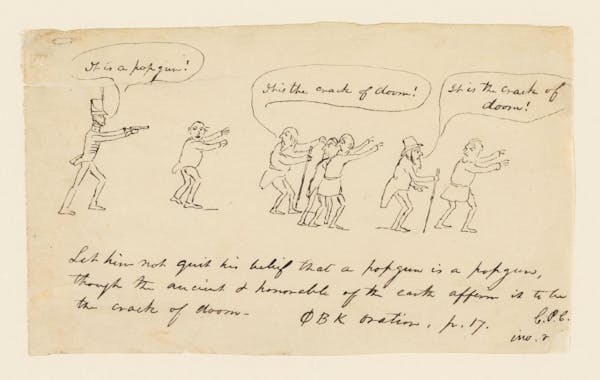 It is a popgun!
It is the crack of doom!
It is the crack of
doom!
Let him not quit his belief that a popgun is a popgun,
though the ancient & honorable of the earth affirm it to be
the crack of doom - ΦBK oration, p. 17.
C.P.C.